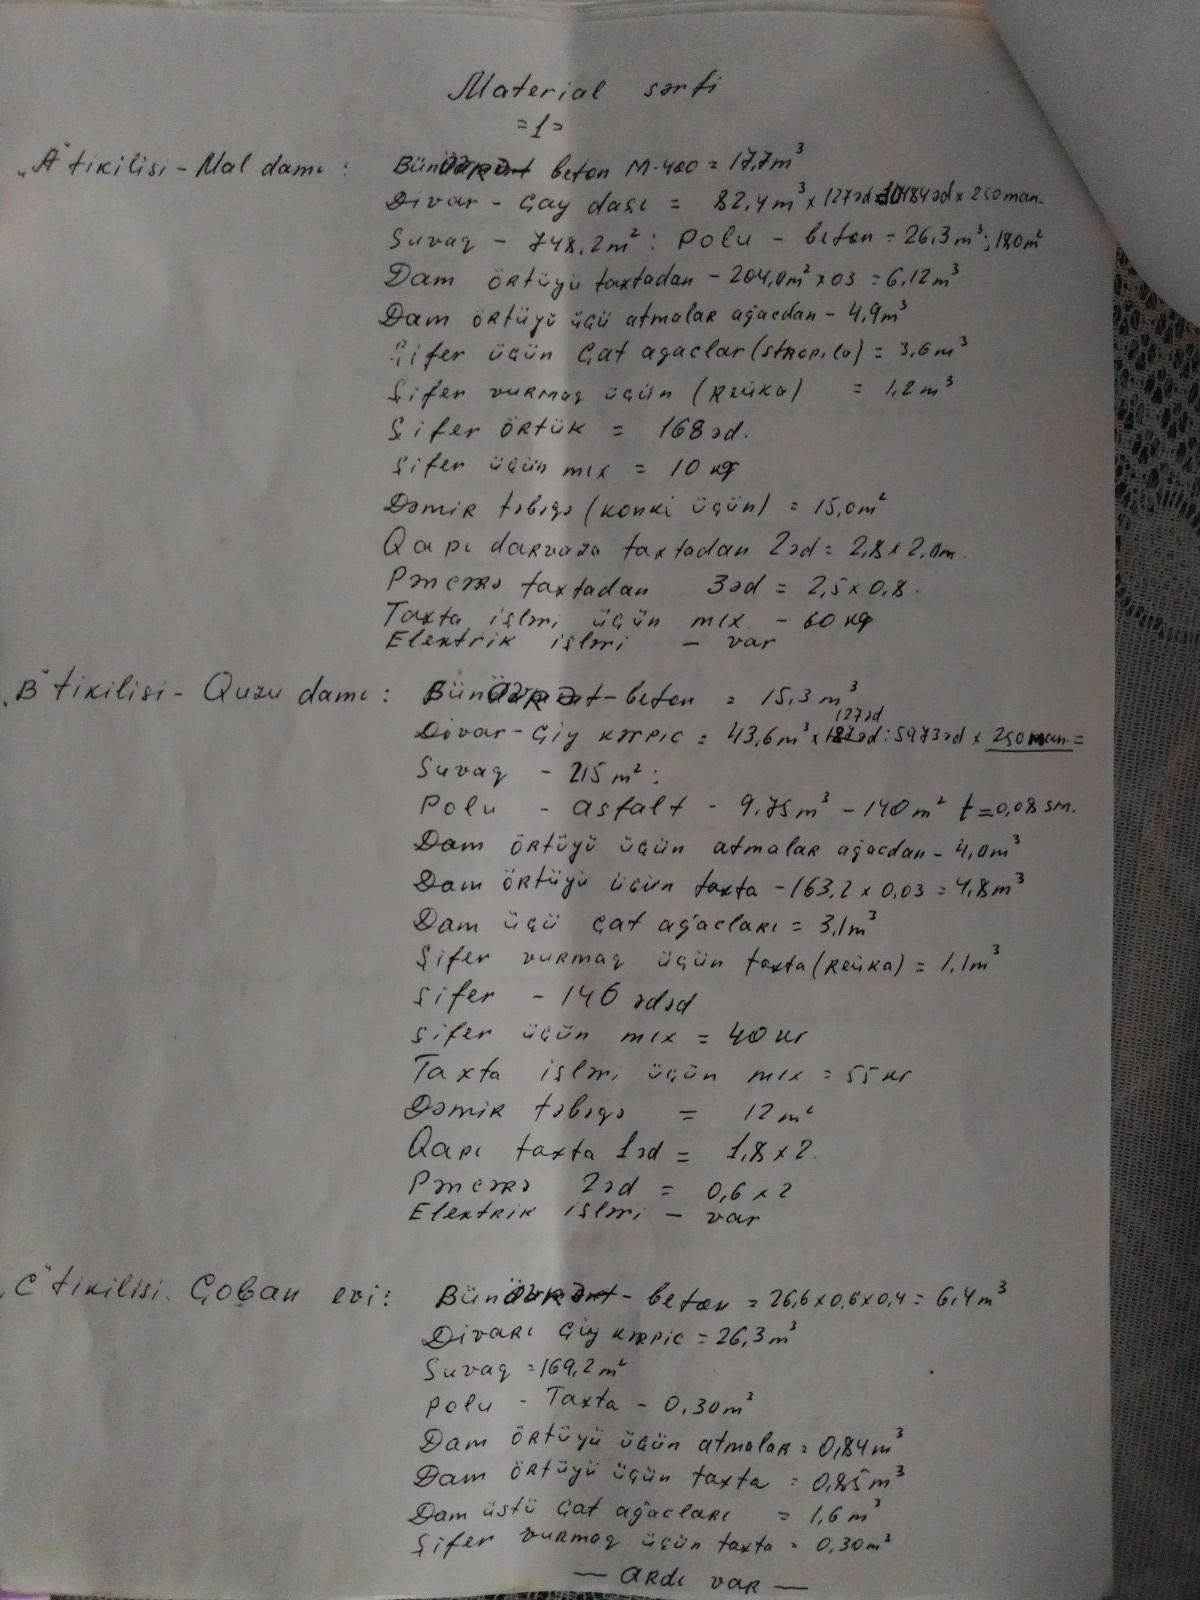 Material sərfi
=1=
„A" tikilisi - Mal damı: Bünövrə beton M-400 = 17,7m³
Divar - Çay daşı = 82,4m³ x 127əd 10484əd x 250man.
Suvaq - 748,2m²: Polu - beton = 26,3m³; 180m²
Dam örtüyü taxtadan - 204,0m² x 03 = 6,12m³
Dam örtüyü üçü atmalar ağacdan - 4,9m³
Şifer üçün Çat agaclar (stropila) = 3,6m³
Şifer vurmaq üçün (Reйka) = 1,2m³
Şifer örtük = 168əd.
Şifer üçün mıx = 10 кg
Dəmir təbəqə (konki üçün) = 15,0m²
Qapı darvaza taxtadan 2əd = 2,8 x 2,0m.
Pəncərə taxtadan 3əd = 2,5 x 0,8.
Taxta işləri üçün mıx - 60 кg
Elektrik işləri - var
„B" tikilisi - Quzu damı: Bünövrə - beton = 15,3m³
127əd
Divar - Çiy kərpic = 43,6m³ x 127əd: 5973əd x 250man =
Suvaq - 215m²:
Polu - asfalt - 9.75m³ - 140m² t=0,08sm.
Dam örtüyü üçün atmalar ağacdan - 4,0m³
Dam örtüyü üçün taxta - 163,2 x 0,03 = 4,8m³
Dam üçü Çat ağacları = 3,1m³
Şifer vurmaq üçün taxta (Reйka) = 1,1m³
Şifer - 146 ədəd
Şifer üçün mıx = 40 кг
Taxta işləri üçün mıx = 55 кг
Dəmir təbəqə = 12m²
Qapı taxta 1əd = 1,8 x 2.
Pəncərə 2əd = 0,6 x 2
Elektrik işləri - var
„C" tikilisi: Çoban evi: Bünövrə - beton = 26,6 x 0,6 x 0,4 = 6,4m³
Divarı Çiy kərpic = 26,3m³
Suvaq = 169,2m²
Polu - Taxta - 0,30m³
Dam örtüyü üçün atmalar = 0,84m³
Dam örtüyü üçün taxta = 0,85m³
Dam üstü Çat ağacları = 1,6m³
Şifer vurmaq üçün taxta = 0,30m³
— ardı var —